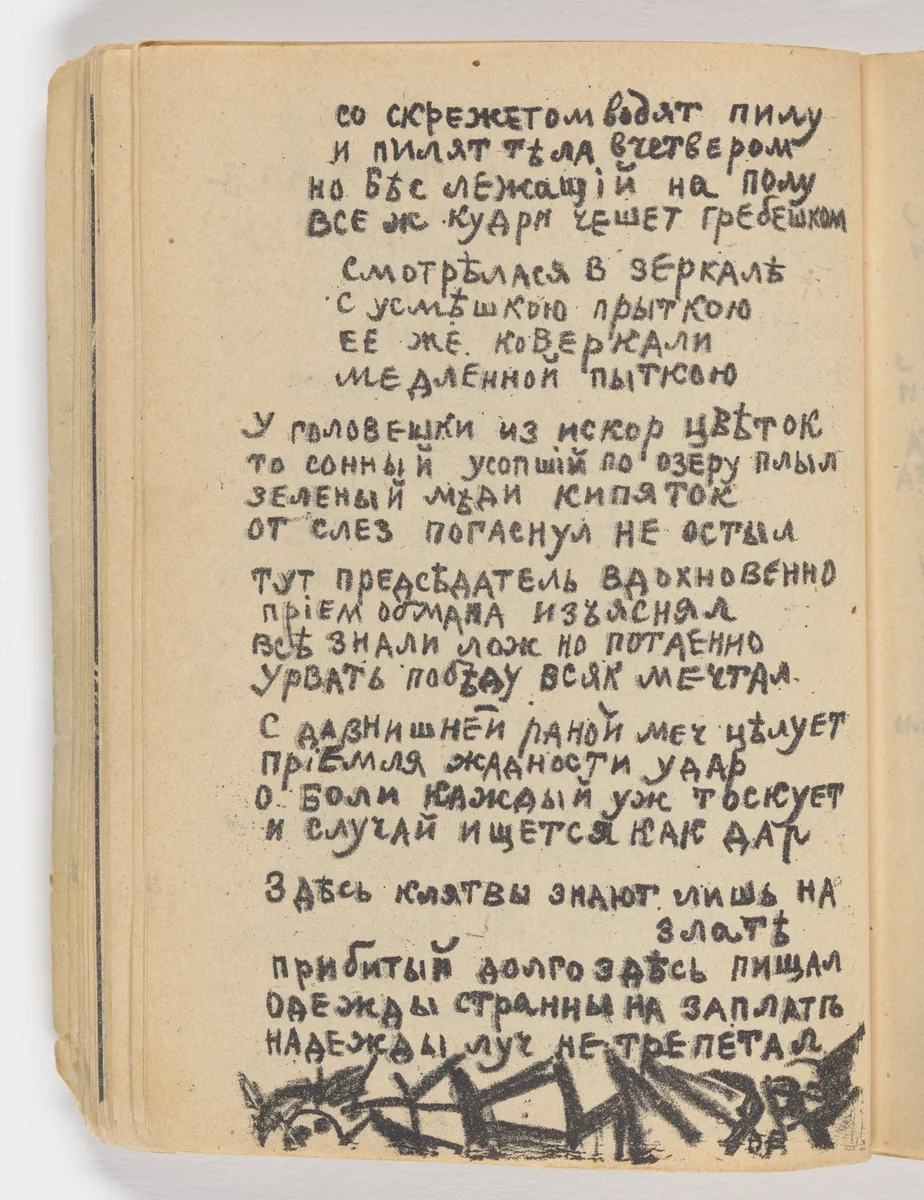 со скрежетом водят пилу
и пилят тѣла вчетвером
но бѣс лежащій на полу
все ж кудри чешет гребешком
смотрѣлася в зеркалѣ
с усмѣшкою прыткою
ее же коверкали
медленной пыткою
У головешки из искор цвѣток
то сонный усопшій по озеру плыл
зеленый мѣди кипяток
от слез погаснул не остыл
тут предсѣдатель вдохновенно
пріем обмана изъяснял
всѣ знали лож но потаенно
урвать побѣду всяк мечтал.
с давнишней раной меч цѣлует
пріемля жадности удар
о боли каждый уж тоскует
и случай ищется как дар
Здѣсь клятвы знают лишь на
златѣ
прибитый долго здѣсь пищал
одежды странны на заплатѣ
надежды луч не трепетал